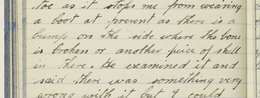 toe as it stops me from wearing
a boot at present as there is a
bump on the side where the bone
is broken or another piece of shell
in there. He examined it and
said there was something very
wrong with it but I could